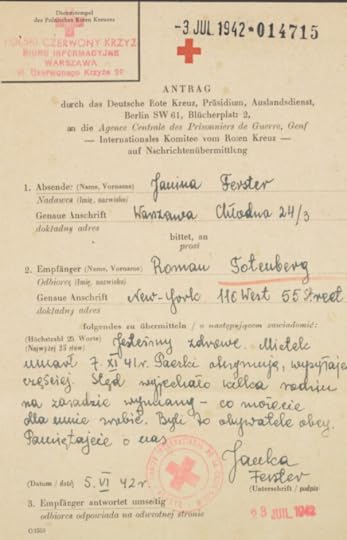 Dienststempel
des Polnischen Roten Kreuzes
POLSKI CZERWONY KRZYŻ
BIURO INFORMACYJNE
WARSZAWA
-3 JUL 1942 * 014715
ANTRAG
durch das Deutsche Rote Kreuz, Präsidium, Auslandsdienst,
Berlin SW 61, Blücherplatz 2,
an die Agence Centrale des Prisonniers de Guerre, Genf
— Internationales Komitee vom Roten Kreuz —
auf Nachrichtenübermittlung
1. Absender (Name, Vorname) Janina Ferster
Nadawca (Imię, nazwisko)
Genaue Anschrift Warszawa Chłodna 24/3
dokładny adres
bittet, an
prosi
2. Empfänger (Name, Vorname) Roman Totenberg
Odbiorcę (Imię, nazwisko)
Genaue Anschrift New-York 116 West 55 Street
dokładny adres
folgendes zu übermitteln / o następującem zawiadomić:
(Höchstzahl 25 Worte) Jesteśmy zdrowe. Mietek
(Najwyżej 25 słów)
umarł 7. XI 41 r. Paczki otrzymuję, wysyłajcie
częściej. Stąd wyjechało kilka rodzin
na zasadzie wymiany - co możecie
dla mnie zrobić. Byli to obywatele obcy.
Pamiętajcie o nas
Janka
Ferster
(Datum / data) 5. VI 42 r.
(Unterschrift / podpis)
23 JUL 1942
3. Empfänger antwortet umseitig
odbiorca odpowiada na odwrotnej stronie